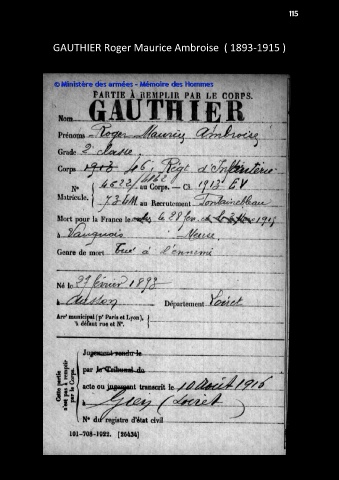 115
GAUTHIER Roger Maurice Ambroise ( 1893-1915 )
© Ministère des armées - Mémoire des Hommes
PARTIE À REMPLIR PAR LE CORPS.
Nom GAUTHIER
Prénoms Roger Maurice Ambroise
Grade 2e classe
Corps 46e Régt d'Infanterie
N° 4622 au Corps. — Cl 1913 EV
Matricule. 734 au Recrutement Fontainebleau
Mort pour la France le 28 1915
à Vauquois Meuse
Genre de mort Tué à l'ennemi
Né le février 1893
à Département Loiret
Arr' municipal (p' Paris et Lyon),
à défaut rue et N°.
Cette partie
n'est pas à remplir
par le Corps.
Jugement rendu le
par le Tribunal de
acte ou jugement transcrit le 10 Août 1916
à Gien (Loiret)
N° du registre d'état civil
101-708-1922. [26434]